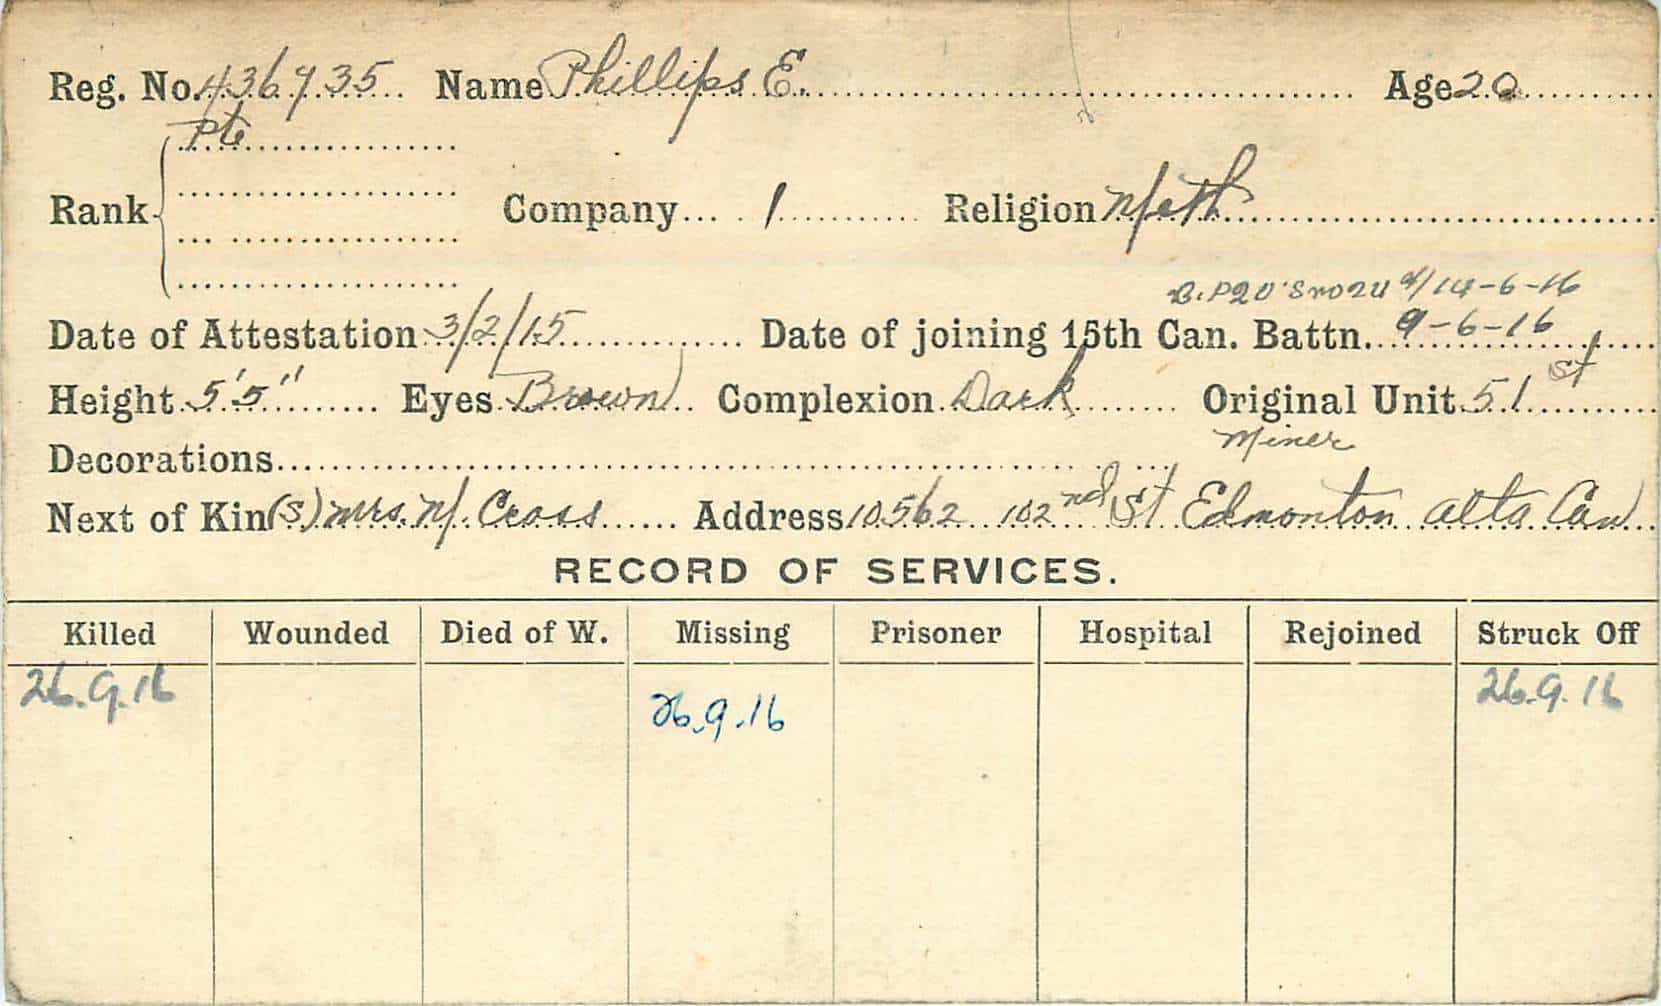 Reg. No. 436735 Name Phillips E. Age 20
Pte
Rank Company 1 Religion Meth
14-6-16
Date of Attestation 3/2/15 Date of joining 15th Can. Battn. 9-6-16
Height 5'5" Eyes Brown Complexion Dark Original Unit 51st
Miner
Decorations
Next of Kin (S) Mrs. M. Cross Address 10562 102nd St Edmonton Alta Can
RECORD OF SERVICES.
Killed Wounded Died of W. Missing Prisoner Hospital Rejoined Struck Off
26.9.16 26.9.16 26.9.16